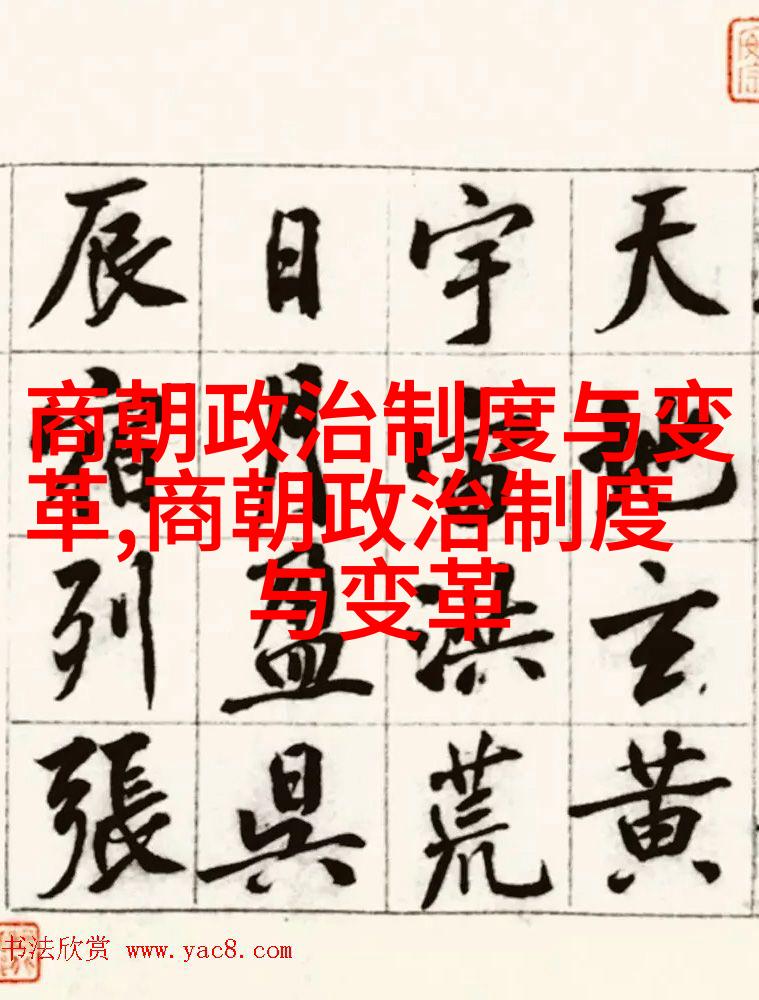 天地玄黄
宇宙洪荒
日月盈昃
辰宿列張
商朝政治制度与变
革,商朝政治制度
与变革
书法欣赏 www.yac8.com